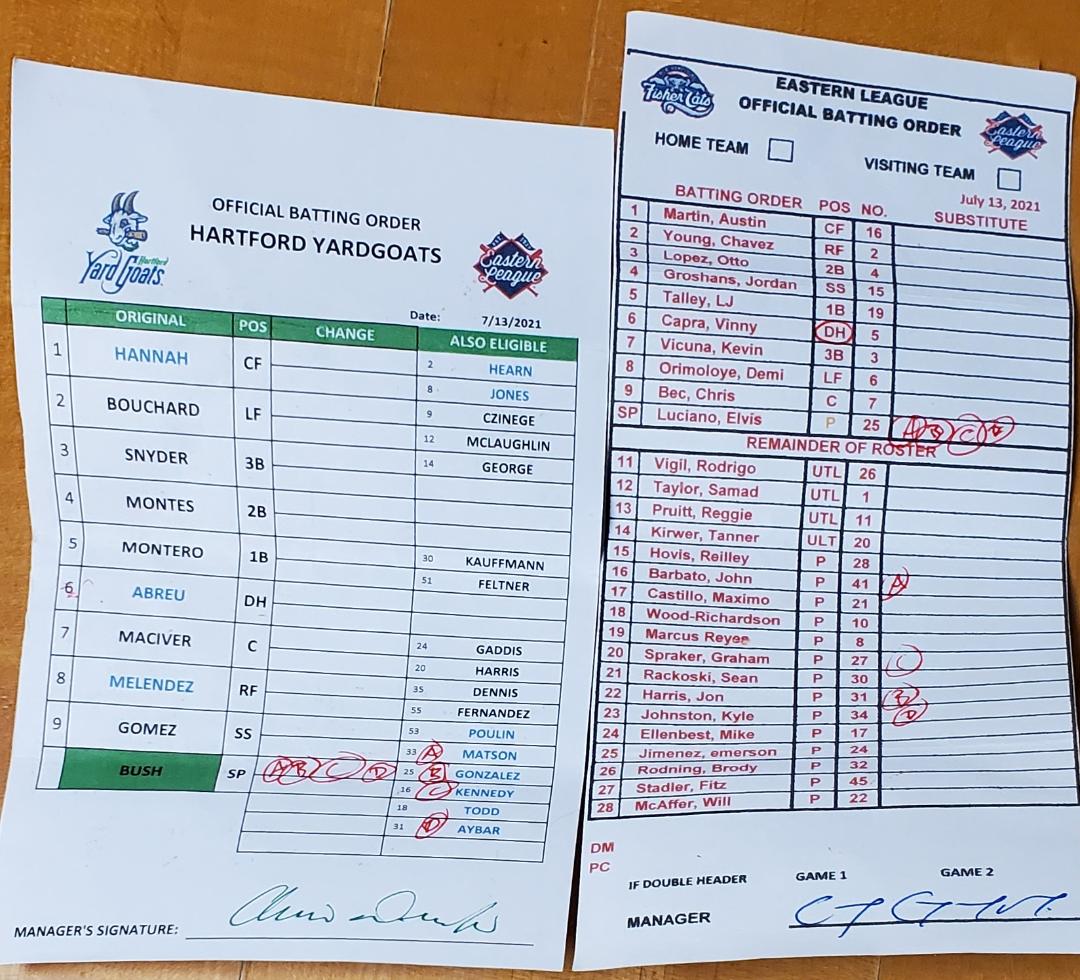 Hartford
Yard Goats
OFFICIAL BATTING ORDER
HARTFORD YARDGOATS
Eastern League
Date: 7/13/2021
ORIGINAL POS CHANGE ALSO ELIGIBLE
1 HANNAH CF
2 BOUCHARD LF
3 SNYDER 3B
4 MONTES 2B
5 MONTERO 1B
6 ABREU DH
7 MACIVER C
8 MELENDEZ RF
9 GOMEZ SS
BUSH SP A B C D
2 HEARN
8 JONES
9 CZINEGE
12 MCLAUGHLIN
14 GEORGE
30 KAUFFMANN
51 FELTNER
24 GADDIS
20 HARRIS
35 DENNIS
55 FERNANDEZ
53 POULIN
33 A MATSON
25 B GONZALEZ
16 C KENNEDY
18 TODD
31 D AYBAR
MANAGER'S SIGNATURE:
Fisher Cats
EASTERN LEAGUE
OFFICIAL BATTING ORDER
Eastern League
HOME TEAM
VISITING TEAM
July 13, 2021
BATTING ORDER POS NO. SUBSTITUTE
1 Martin, Austin CF 16
2 Young, Chavez RF 2
3 Lopez, Otto 2B 4
4 Groshans, Jordan SS 15
5 Talley, LJ 1B 19
6 Capra, Vinny DH 5
7 Vicuna, Kevin 3B 3
8 Orimoloye, Demi LF 6
9 Bec, Chris C 7
SP Luciano, Elvis P 25 A B C D
REMAINDER OF ROSTER
11 Vigil, Rodrigo UTL 26
12 Taylor, Samad UTL 1
13 Pruitt, Reggie UTL 11
14 Kirwer, Tanner ULT 20
15 Hovis, Reilley P 28
16 Barbato, John P 41 A
17 Castillo, Maximo P 21
18 Wood-Richardson P 10
19 Marcus Reyes P 8
20 Spraker, Graham P 27 C
21 Rackoski, Sean P 30
22 Harris, Jon P 31 B
23 Johnston, Kyle P 34 D
24 Ellenbest, Mike P 17
25 Jimenez, emerson P 24
26 Rodning, Brody P 32
27 Stadler, Fitz P 45
28 McAffer, Will P 22
DM
PC
IF DOUBLE HEADER GAME 1 GAME 2
MANAGER